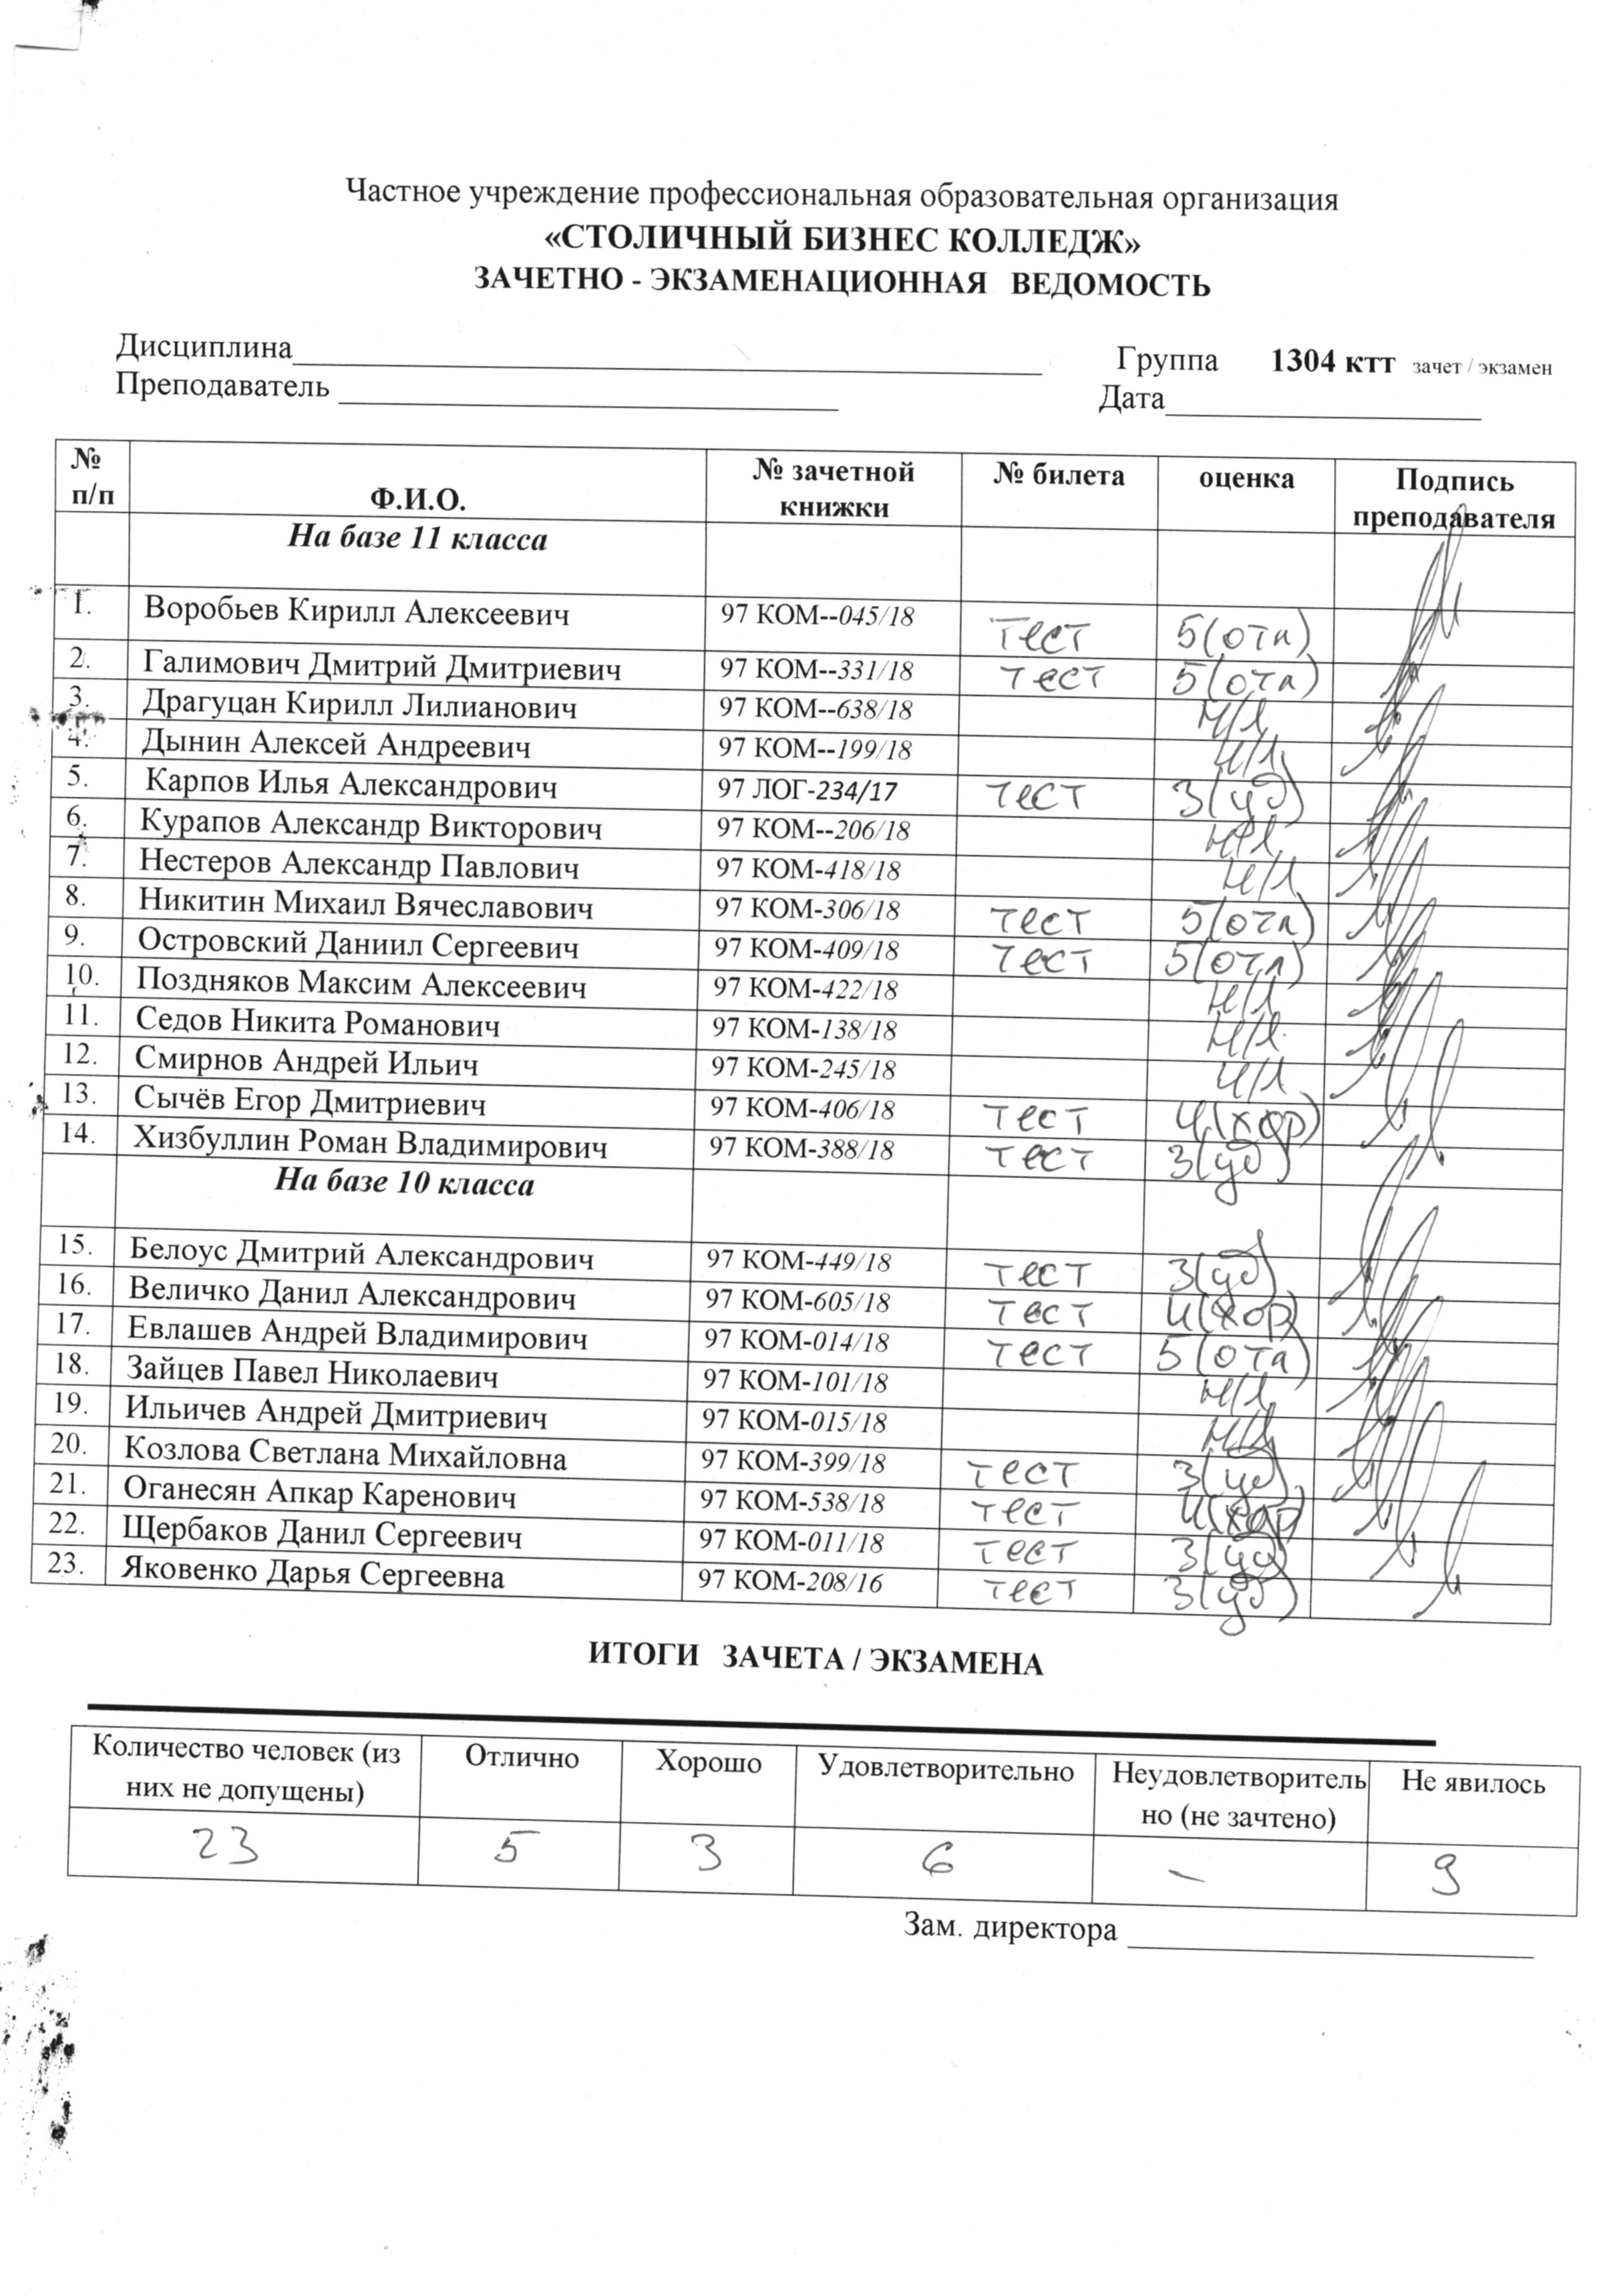 Частное учреждение профессиональная образовательная организация
«СТОЛИЧНЫЙ БИЗНЕС КОЛЛЕДЖ»
ЗАЧЕТНО - ЭКЗАМЕНАЦИОННАЯ ВЕДОМОСТЬ
Дисциплина Группа 1304 ктт зачет / экзамен
Преподаватель Дата
№ п/п Ф.И.О. № зачетной книжки № билета оценка Подпись преподавателя
На базе 11 класса
1. Воробьев Кирилл Алексеевич 97 КОМ--045/18 тест 5(отл)
2. Галимович Дмитрий Дмитриевич 97 КОМ--331/18 тест 5(отл)
3. Драгуцан Кирилл Лилианович 97 КОМ--638/18 Н/Я
4. Дынин Алексей Андреевич 97 КОМ--199/18 Н/Я
5. Карпов Илья Александрович 97 ЛОГ-234/17 тест 3(уд)
6. Курапов Александр Викторович 97 КОМ--206/18 Н/Я
7. Нестеров Александр Павлович 97 КОМ-418/18 Н/Я
8. Никитин Михаил Вячеславович 97 КОМ-306/18 тест 5(отл)
9. Островский Даниил Сергеевич 97 КОМ-409/18 тест 5(отл)
10. Поздняков Максим Алексеевич 97 КОМ-422/18 Н/Я
11. Седов Никита Романович 97 КОМ-138/18 Н/Я
12. Смирнов Андрей Ильич 97 КОМ-245/18 Н/Я
13. Сычёв Егор Дмитриевич 97 КОМ-406/18 тест 4(хор)
14. Хизбуллин Роман Владимирович 97 КОМ-388/18 тест 3(уд)
На базе 10 класса
15. Белоус Дмитрий Александрович 97 КОМ-449/18 тест 3(уд)
16. Величко Данил Александрович 97 КОМ-605/18 тест 4(хор)
17. Евлашев Андрей Владимирович 97 КОМ-014/18 тест 5(отл)
18. Зайцев Павел Николаевич 97 КОМ-101/18 Н/Я
19. Ильичев Андрей Дмитриевич 97 КОМ-015/18 Н/Я
20. Козлова Светлана Михайловна 97 КОМ-399/18 тест 3(уд)
21. Оганесян Апкар Каренович 97 КОМ-538/18 тест 4(хор)
22. Щербаков Данил Сергеевич 97 КОМ-011/18 тест 3(уд)
23. Яковенко Дарья Сергеевна 97 КОМ-208/16 тест 3(уд)
ИТОГИ ЗАЧЕТА / ЭКЗАМЕНА
Количество человек (из Отлично Хорошо Удовлетворительно Неудовлетворитель Не явилось
них не допущены) но (не зачтено)
23 5 3 6 — 9
Зам. директора